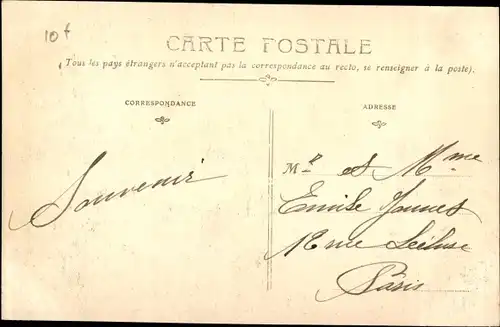 10 f
CARTE POSTALE
(Tous les pays étrangers n'acceptant pas la correspondance au recto, se renseigner à la poste).
CORRESPONDANCE
ADRESSE
Souvenir
Mr et Mme
Emile
12 rue Lécluse
Paris